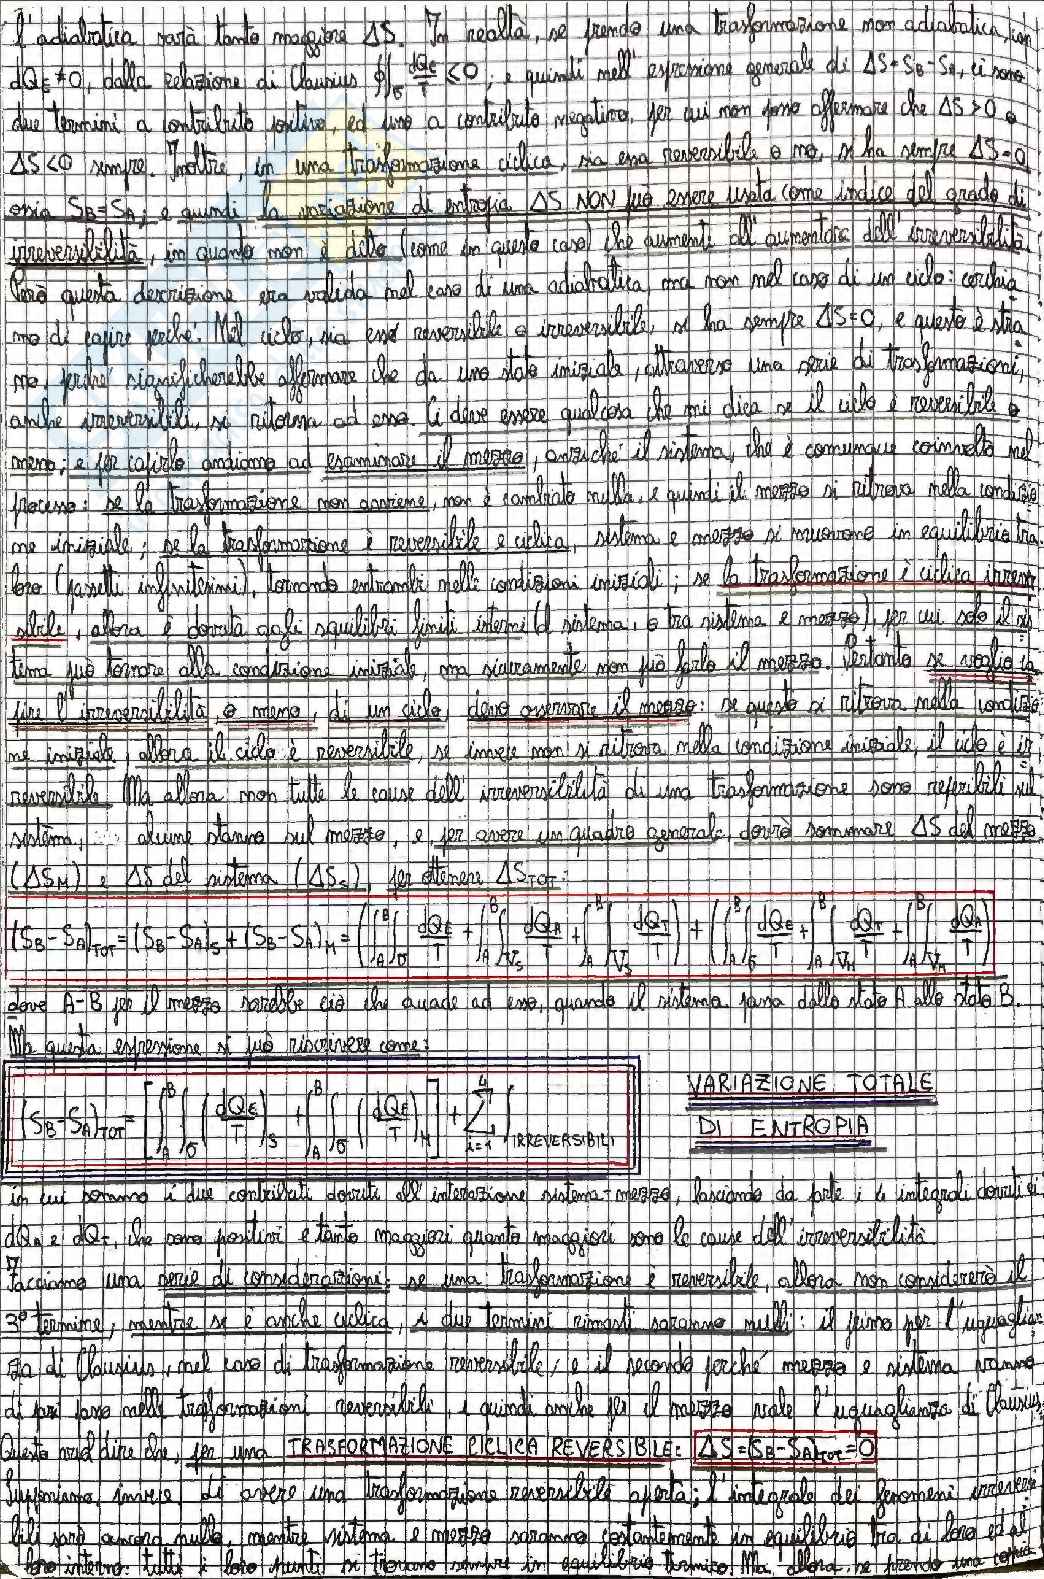 l'adiabatica sarà tanto maggiore ΔS. In realtà, se prendo una trasformazione non adiabatica, con
dQE ≠ 0, dalla relazione di Clausius ∮∫σ dQE/T < 0; e quindi nell'espressione generale di ΔS = SB - SA, ci sono
due termini a contributo positivo, ed uno a contributo negativo, per cui non posso affermare che ΔS > 0 o
ΔS < 0 sempre. Inoltre, in una trasformazione ciclica, sia essa reversibile o no, si ha sempre ΔS = 0
ossia SB = SA; e quindi la variazione di entropia ΔS NON può essere usata come indice del grado di
irreversibilità, in quanto non è detto (come in questo caso) che aumenti all'aumentare dell'irreversibilità.
Però questa descrizione era valida nel caso di una adiabatica, ma non nel caso di un ciclo: cerchia
mo di capire perché. Nel ciclo, sia esso reversibile o irreversibile, si ha sempre ΔS = 0, e questo è stra
no, perché significherebbe affermare che da uno stato iniziale, attraverso una serie di trasformazioni,
anche irreversibili, si ritorna ad esso. Ci deve essere qualcosa che mi dica se il ciclo è reversibile o
meno; e per capirlo andiamo ad esaminare il mezzo, anziché il sistema, che è comunque coinvolto nel
processo: se la trasformazione non avviene, non è cambiato nulla, e quindi il mezzo si ritrova nella condizio
ne iniziale; se la trasformazione è reversibile e ciclica, sistema e mezzo si muovono in equilibrio tra
loro (passetti infinitesimi), tornando entrambi nelle condizioni iniziali; se la trasformazione è ciclica irrever
sibile, allora è dovuta agli squilibri finiti interni (al sistema, o tra sistema e mezzo), per cui solo il sis
tema può tornare alla condizione iniziale, ma sicuramente non può farlo il mezzo. Pertanto se voglio ca
pire l'irreversibilità, o meno, di un ciclo, devo osservare il mezzo: se questo si ritrova nella condizio
ne iniziale, allora il ciclo è reversibile, se invece non si ritrova nella condizione iniziale, il ciclo è ir
reversibile. Ma allora non tutte le cause dell'irreversibilità di una trasformazione sono riferibili sul
sistema, alcune stanno sul mezzo, e, per avere un quadro generale, dovrò sommare ΔS del mezzo
(ΔSM) e ΔS del sistema (ΔSS), per ottenere ΔSTOT:
(SB - SA)TOT = (SB - SA)S + (SB - SA)M = (∫A^B ∫σ dQE/T + ∫A^B ∫VS dQA/T + ∫A^B ∫VS dQT/T) + (∫A^B ∫σ dQE/T + ∫A^B ∫VM dQT/T + ∫A^B ∫VM dQA/T)
dove A-B per il mezzo sarebbe ciò che accade ad esso, quando il sistema passa dallo stato A allo stato B.
Ma questa espressione si può riscrivere come:
(SB - SA)TOT = [∫A^B ∫σ (dQE/T)S + ∫A^B ∫σ (dQE/T)M] + Σ i=1 4 ∫IRREVERSIBILI
VARIAZIONE TOTALE
DI ENTROPIA
in cui sommo i due contributi dovuti all'interazione sistema-mezzo, lasciando da parte i 4 integrali dovuti ai
dQA e dQT, che sono positivi e tanto maggiori quanto maggiori sono le cause dell'irreversibilità.
Facciamo una serie di considerazioni: se una trasformazione è reversibile, allora non considererò il
3° termine, mentre se è anche ciclica, i due termini rimasti saranno nulli: il primo per l'uguaglian
za di Clausius, nel caso di trasformazione reversibile; e il secondo perché mezzo e sistema vanno
di pari passo nelle trasformazioni reversibili, e quindi anche per il mezzo vale l'uguaglianza di Clausius.
Questo vuol dire che, per una TRASFORMAZIONE CICLICA REVERSIBILE: ΔS = (SB - SA)TOT = 0
Supponiamo, invece, di avere una trasformazione reversibile aperta; l'integrale dei fenomeni irreversi
bili sarà ancora nullo, mentre sistema e mezzo saranno costantemente in equilibrio tra di loro ed al
loro interno: tutti i loro punti si trovano sempre in equilibrio termico. Ma allora, se prendo una coppia